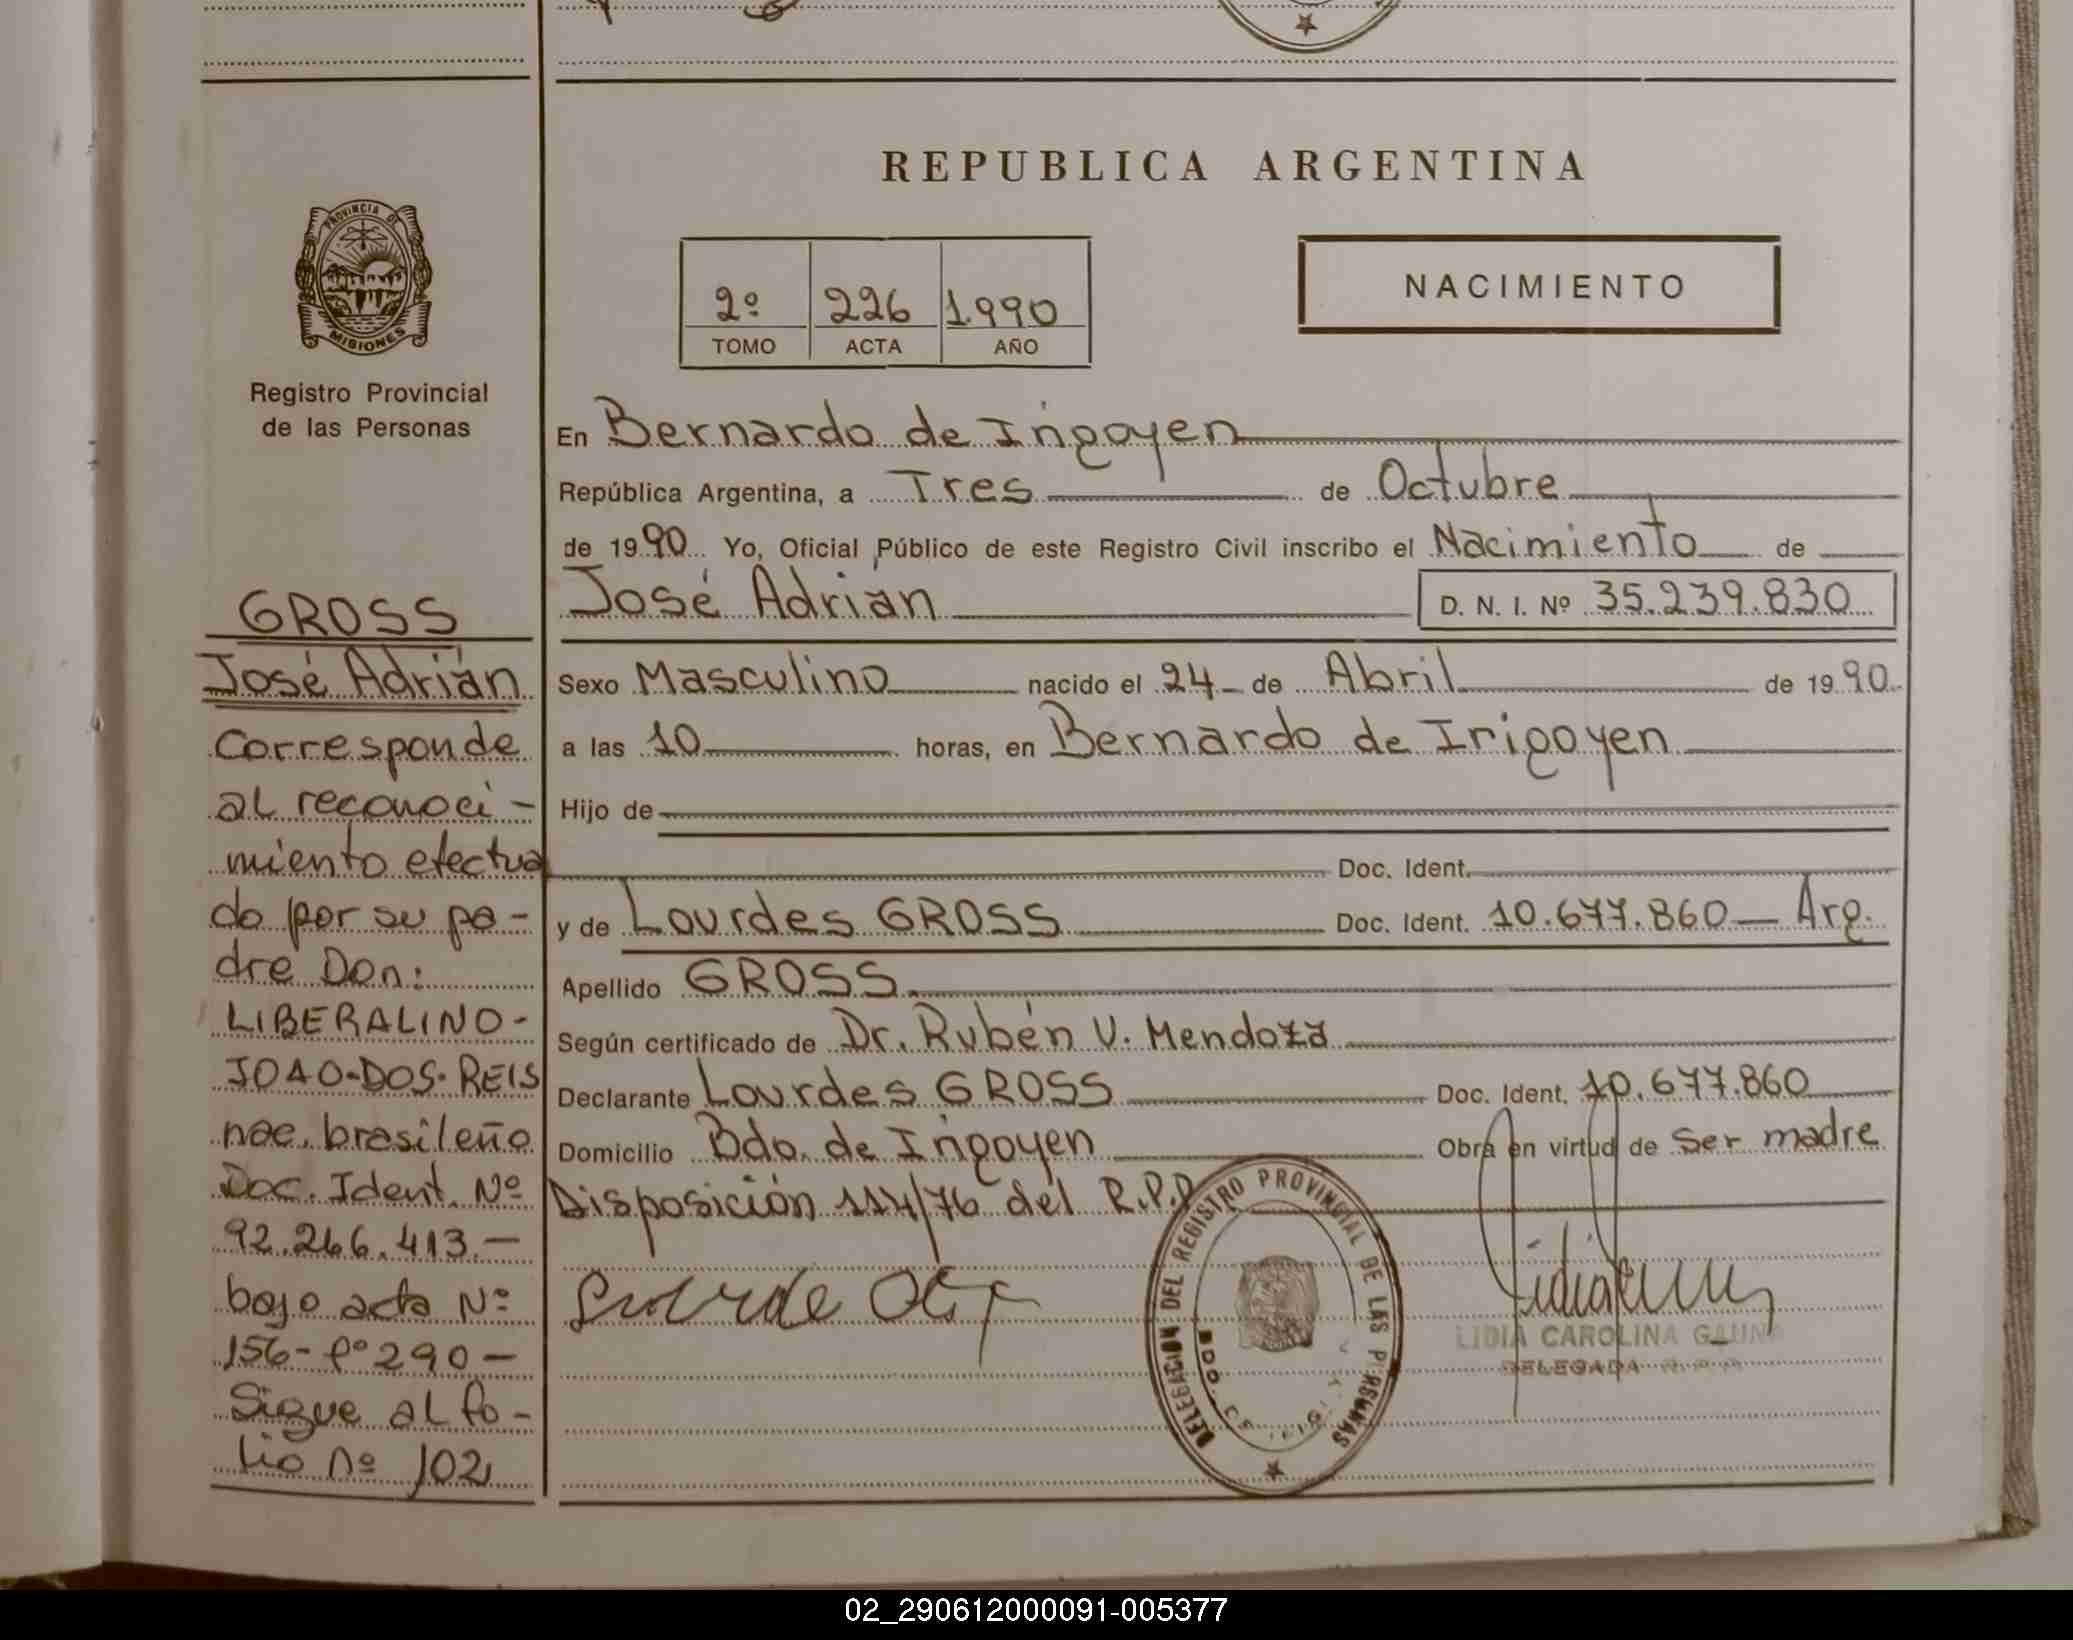 REPUBLICA ARGENTINA
2º 226 1.990
TOMO ACTA AÑO
NACIMIENTO
PROVINCIA DE
MISIONES
Registro Provincial
de las Personas
GROSS
José Adrián
Corresponde
al reconoci-
miento efectua
do por su pa-
dre Don:
LIBERALINO-
JOAO-DOS-REIS
nac. brasileño
Doc. Ident. Nº
92.266.413.-
bajo acta Nº
156-fº290-
Sigue al fo-
lio nº 102
En Bernardo de Irigoyen
República Argentina, a Tres de Octubre
de 1990 Yo, Oficial Público de este Registro Civil inscribo el Nacimiento de
José Adrián D. N. I. Nº 35.239.830
Sexo Masculino nacido el 24 de Abril de 1990
a las 10 horas, en Bernardo de Irigoyen
Hijo de
Doc. Ident.
y de Lourdes GROSS Doc. Ident. 10.677.860 — Arg.
Apellido GROSS.
Según certificado de Dr. Rubén V. Mendoza
Declarante Lourdes GROSS Doc. Ident. 10.677.860
Domicilio Bdo. de Irigoyen Obra en virtud de ser madre
Disposición 114/76 del R.P.P
DELEGACION DEL REGISTRO PROVINCIAL DE LAS PERSONAS
LIDIA CAROLINA GAUNA
DELEGADA R.P.P.
02_290612000091-005377